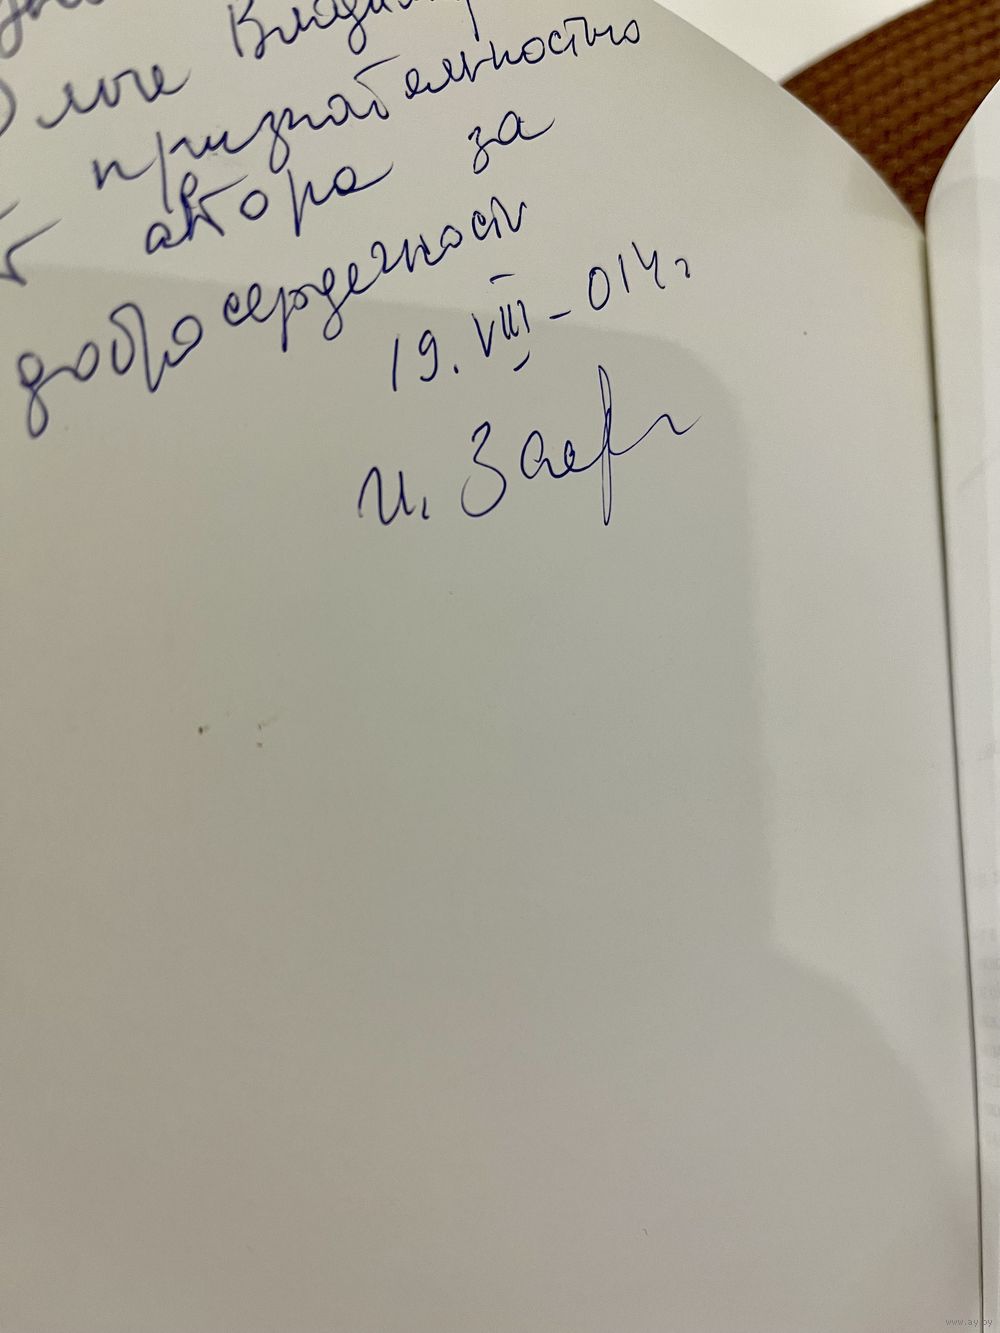 Владим
признательностью
автора за
добросердечность
19. VIII – 014 г
И. Заер
www.ay.by